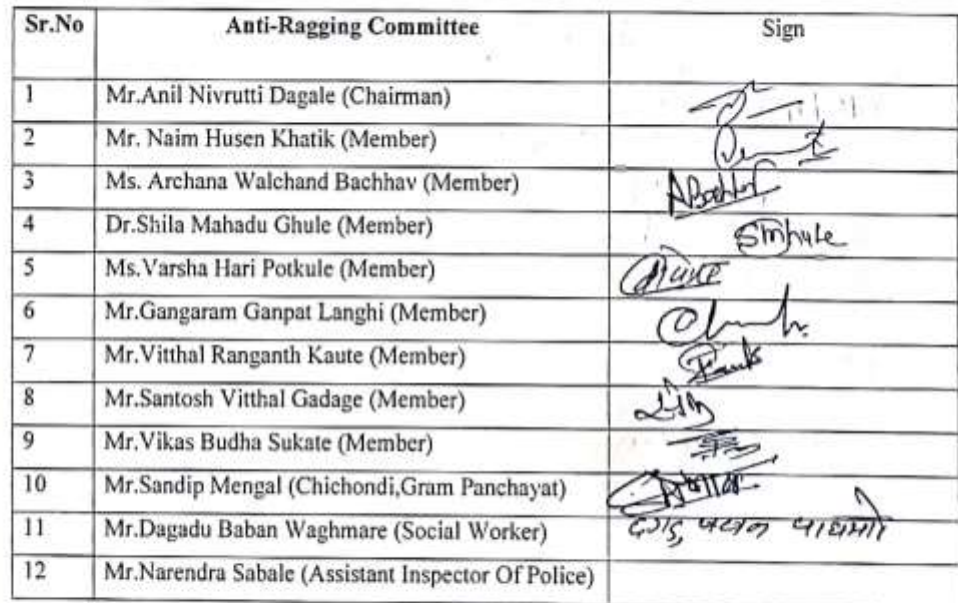 Sr.No Anti-Ragging Committee Sign
1 Mr.Anil Nivrutti Dagale (Chairman)
2 Mr. Naim Husen Khatik (Member)
3 Ms. Archana Walchand Bachhav (Member) ABachhav
4 Dr.Shila Mahadu Ghule (Member) SMGhule
5 Ms.Varsha Hari Potkule (Member)
6 Mr.Gangaram Ganpat Langhi (Member)
7 Mr.Vitthal Ranganth Kaute (Member)
8 Mr.Santosh Vitthal Gadage (Member)
9 Mr.Vikas Budha Sukate (Member)
10 Mr.Sandip Mengal (Chichondi,Gram Panchayat)
11 Mr.Dagadu Baban Waghmare (Social Worker)
12 Mr.Narendra Sabale (Assistant Inspector Of Police)